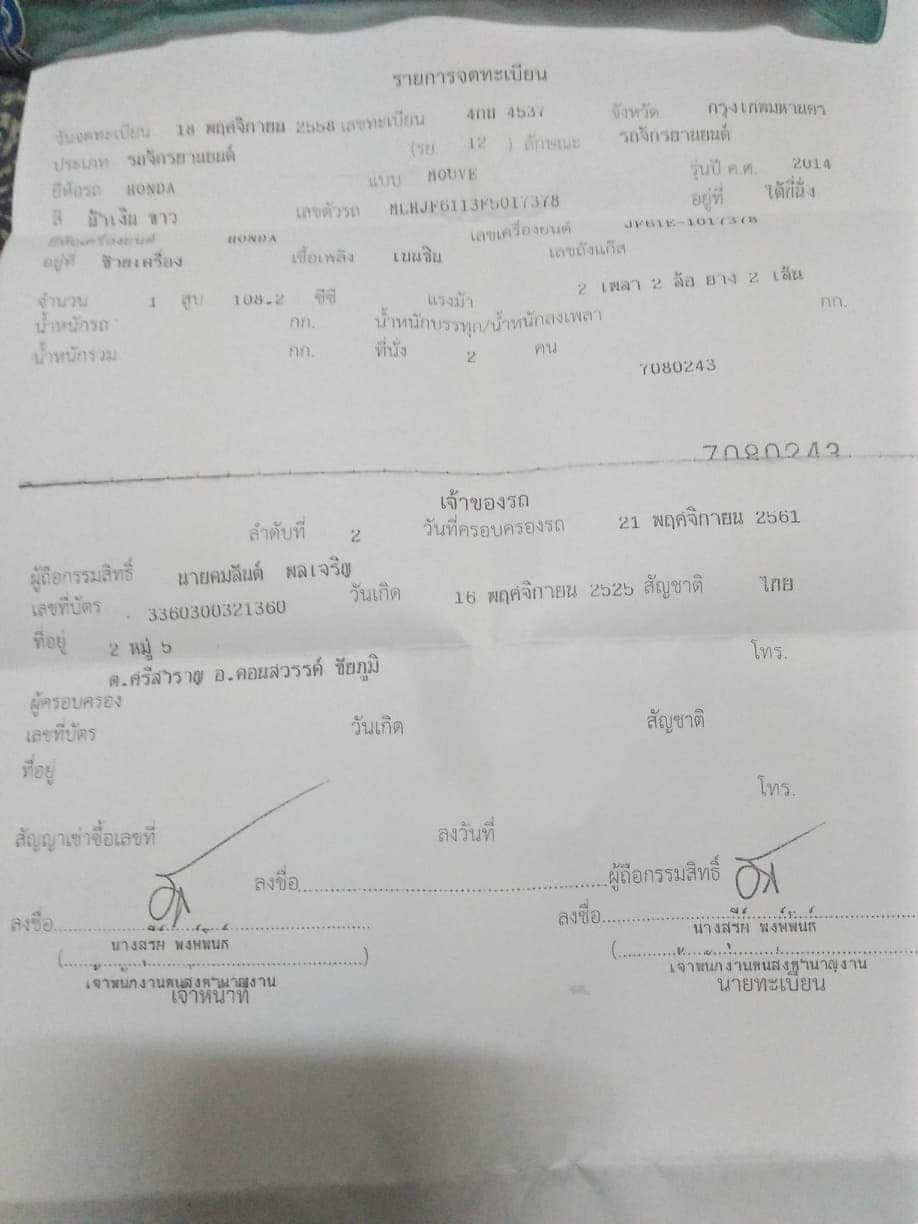 รายการจดทะเบียน
วันจดทะเบียน 18 พฤศจิกายน 2558 เลขทะเบียน 4กษ 4537 จังหวัด กรุงเทพมหานคร
ประเภท รถจักรยานยนต์ (รย 12 ) ลักษณะ รถจักรยานยนต์
ยี่ห้อรถ HONDA แบบ MOOVE รุ่นปี ค.ศ. 2014
สี น้ำเงิน ขาว เลขตัวรถ MLHJF6113F5017378 อยู่ที่ ใต้ที่นั่ง
ยี่ห้อเครื่องยนต์ HONDA เลขเครื่องยนต์ JF61E-1017378
อยู่ที่ ซ้ายเครื่อง เชื้อเพลิง เบนซิน เลขถังแก๊ส
จำนวน 1 สูบ 108.2 ซีซี แรงม้า 2 เพลา 2 ล้อ ยาง 2 เส้น
น้ำหนักรถ กก. น้ำหนักบรรทุก/น้ำหนักลงเพลา กก.
น้ำหนักรวม กก. ที่นั่ง 2 คน
7080243
7080243
เจ้าของรถ
ลำดับที่ 2 วันที่ครอบครองรถ 21 พฤศจิกายน 2561
ผู้ถือกรรมสิทธิ์ นายคมสันต์ พลเจริญ
เลขที่บัตร 3360300321360 วันเกิด 16 พฤศจิกายน 2525 สัญชาติ ไทย
ที่อยู่ 2 หมู่ 6
ต.ศรีสำราญ อ.คอนสวรรค์ ชัยภูมิ โทร.
ผู้ครอบครอง
เลขที่บัตร วันเกิด สัญชาติ
ที่อยู่
โทร.
สัญญาเช่าซื้อเลขที่ ลงวันที่
ลงชื่อ ผู้ถือกรรมสิทธิ์
ลงชื่อ ลงชื่อ
เจ้าหน้าที่ นายทะเบียน